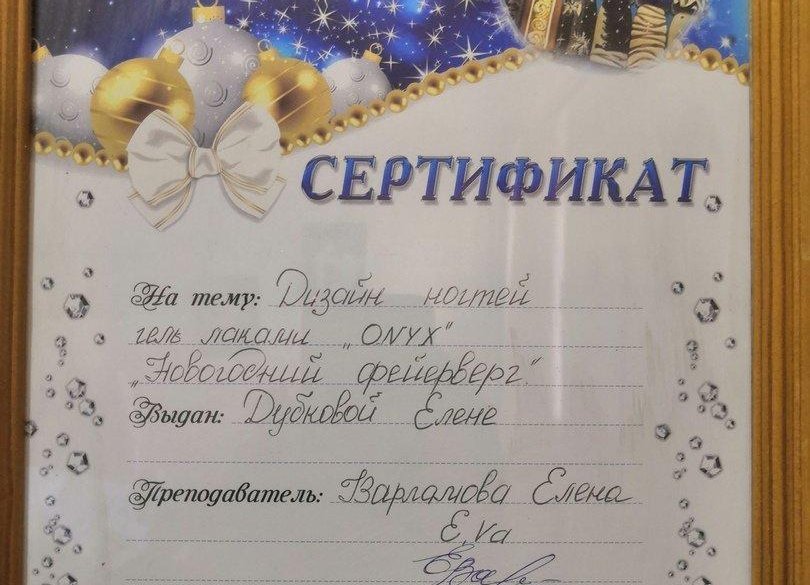 СЕРТИФИКАТ
На тему: Дизайн ногтей
гель лаками „ONYX"
„Новогодний фейерверг."
Выдан: Дубковой Елене
Преподаватель: Варламова Елена
E.Va